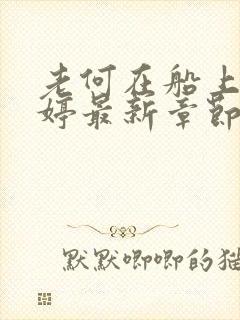 老何在船上
婷最新章节
默默唧唧的猫